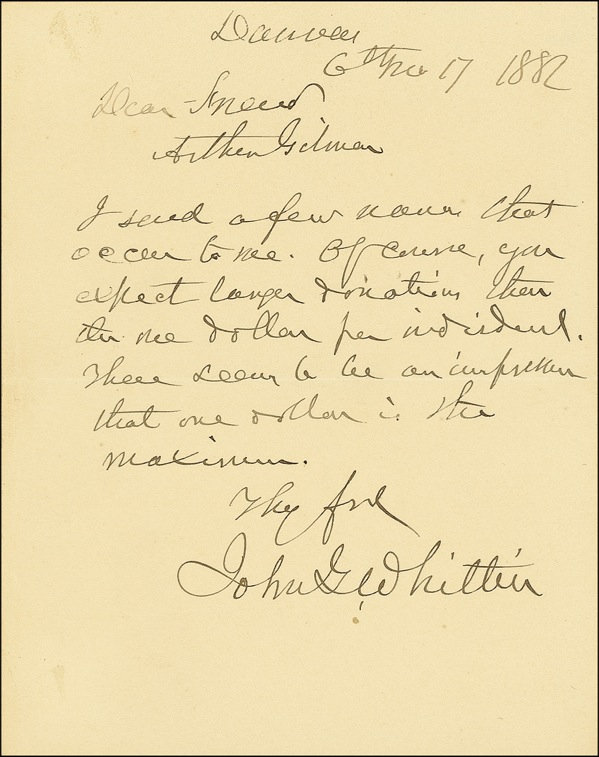 Danvers
6th Mo 17 1882
Dear Friend
Arthur Gilman
I send a few names that
occur to me. Of course, you
expect larger donations than
the one dollar per individual.
There seems to be an impression
that one dollar is the
maximum.
Thy frd
John G. Whittier